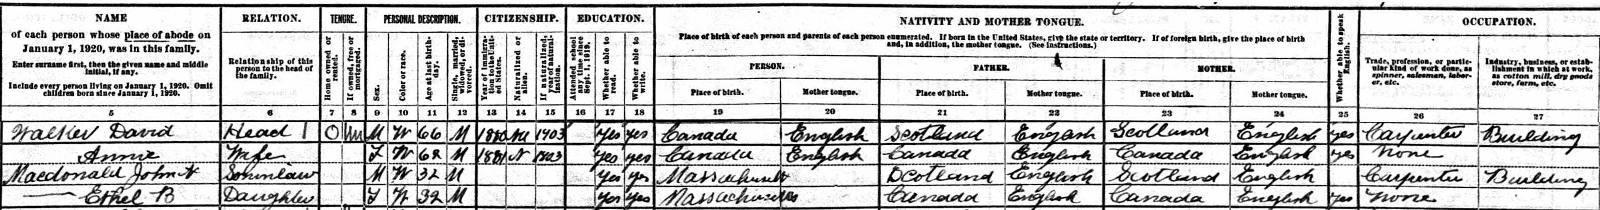 NAME RELATION. TENURE. PERSONAL DESCRIPTION. CITIZENSHIP. EDUCATION. NATIVITY AND MOTHER TONGUE. OCCUPATION.
of each person whose place of abode on January 1, 1920, was in this family.
Enter surname first, then the given name and middle initial, if any.
Include every person living on January 1, 1920. Omit children born since January 1, 1920.
Relationship of this person to the head of the family.
Home owned or rented.
If owned, free or mortgaged.
Sex.
Color or race.
Age at last birthday.
Single, married, widowed, or divorced.
Year of immigration to the United States.
Naturalized or alien.
If naturalized, year of naturalization.
Attended school any time since Sept. 1, 1919.
Whether able to read.
Whether able to write.
Place of birth of each person and parents of each person enumerated. If born in the United States, give the state or territory. If of foreign birth, give the place of birth and, in addition, the mother tongue. (See instructions.)
PERSON. FATHER. MOTHER.
Place of birth. Mother tongue. Place of birth. Mother tongue. Place of birth. Mother tongue.
Whether able to speak English.
Trade, profession, or particular kind of work done, as spinner, salesman, laborer, etc.
Industry, business, or establishment in which at work, as cotton mill, dry goods store, farm, etc.
5 6 7 8 9 10 11 12 13 14 15 16 17 18 19 20 21 22 23 24 25 26 27
Walker David Head 1 O M M W 66 M 1880 Na 1903 Yes yes Canada English Scotland English Scotland English yes Carpenter Building
Annie Wife F W 62 M 1881 N 1903 Yes yes Canada English Canada English Canada English yes None
Macdonald John A Soninlaw M W 32 M Yes yes Massachusetts Scotland English Scotland English Carpenter Building
Ethel B Daughter F W 32 M Yes yes Massachusetts Canada English Canada English yes None